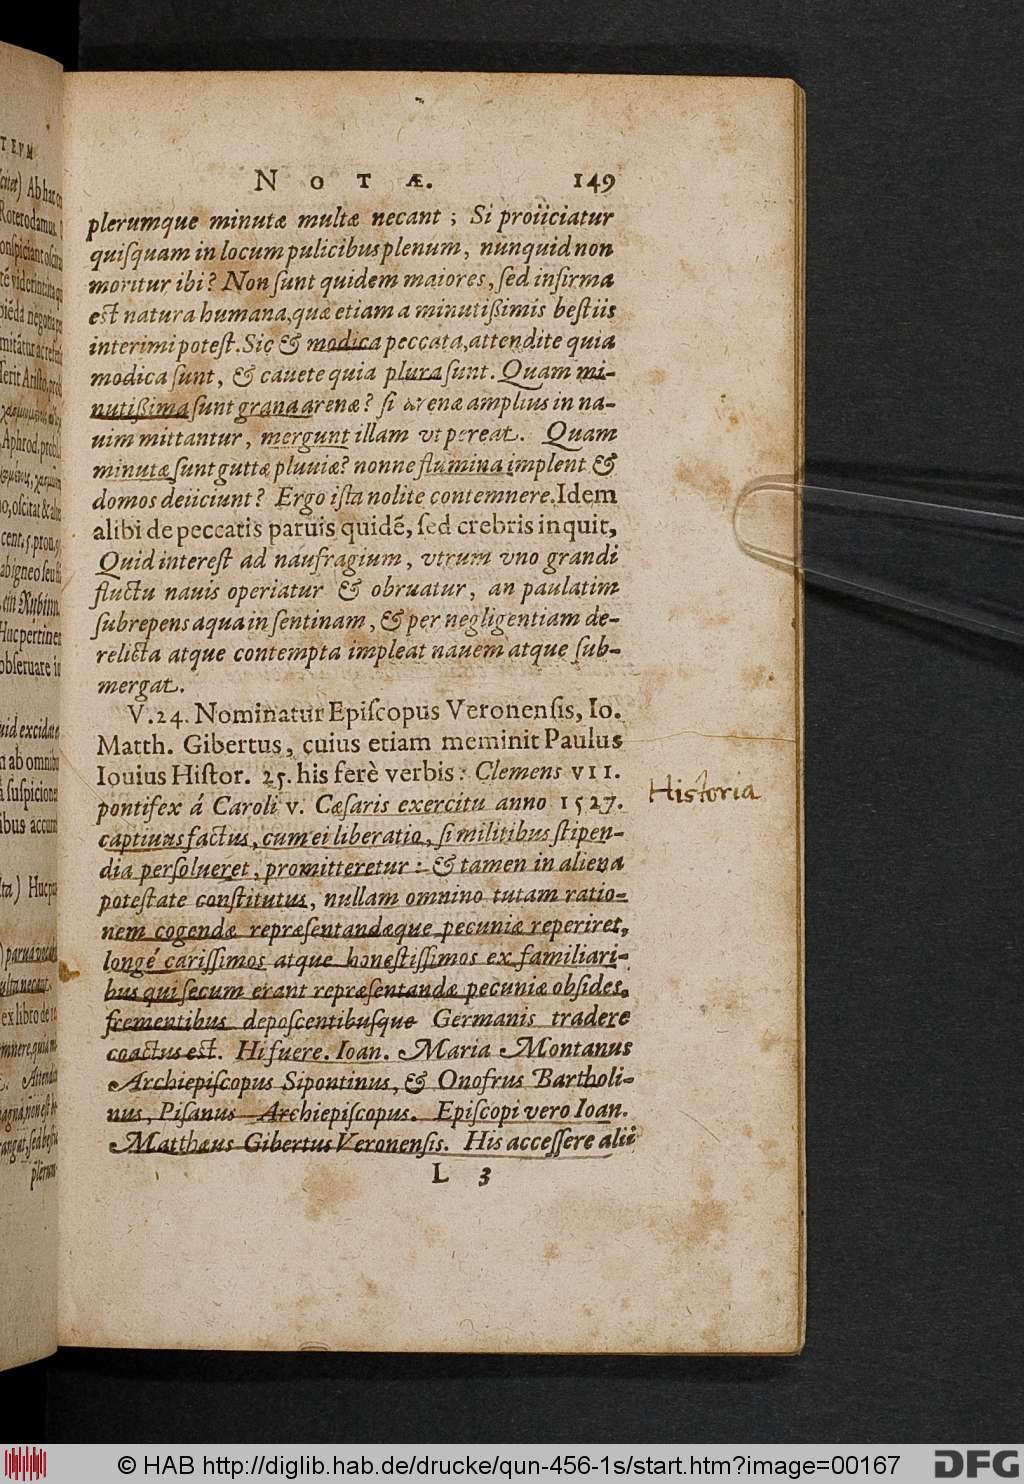 NOTÆ. 149
plerumque minutæ multæ necant; Si proiiciatur
quiſquam in locum pulicibus plenum, nunquid non
moritur ibi? Non ſunt quidem maiores, ſed infirma
est natura humana, quæ etiam a minutißimis beſtiis
interimi poteſt. Sic & modica peccata, attendite quia
modica ſunt, & cauete quia plura ſunt. Quam mi-
nutißima ſunt grana arenæ? ſi arenæ amplius in na-
uim mittantur, mergunt illam vt pereat. Quam
minutæ ſunt guttæ pluuiæ? nonne flumina implent &
domos deiiciunt? Ergo iſta nolite contemnere. Idem
alibi de peccatis paruis quidē, ſed crebris inquit,
Quid intereſt ad naufragium, vtrum vno grandi
fluctu nauis operiatur & obruatur, an paulatim
ſubrepens aqua in ſentinam, & per negligentiam de-
relicta atque contempta impleat nauem atque ſub-
mergat.
V. 24. Nominatur Epiſcopus Veronenſis, Io.
Matth. Gibertus, cuius etiam meminit Paulus
Iouius Hiſtor. 25. his ferè verbis: Clemens VII.
pontifex á Caroli V. Cæſaris exercitu anno 1527.
captiuus factus, cum ei liberatio, ſi militibus ſtipen-
dia perſolueret, promitteretur: & tamen in aliena
poteſtate conſtitutus, nullam omnino tutam ratio-
nem cogendæ repræſentandæque pecuniæ reperiret,
longé cariſſimos atque honeſtiſſimos ex familiari-
bus qui ſecum erant repræſentandæ pecuniæ obſides,
frementibus depoſcentibuſque Germanis tradere
coactus est. Hi fuere. Ioan. Maria Montanus
Archiepiſcopus Sipontinus, & Onofrus Bartholi-
nus, Piſanus Archiepiſcopus. Epiſcopi vero Ioan.
Matthæus Gibertus Veronenſis. His acceſſere alii
L 3
Historia
© HAB http://diglib.hab.de/drucke/qun-456-1s/start.htm?image=00167
DFG